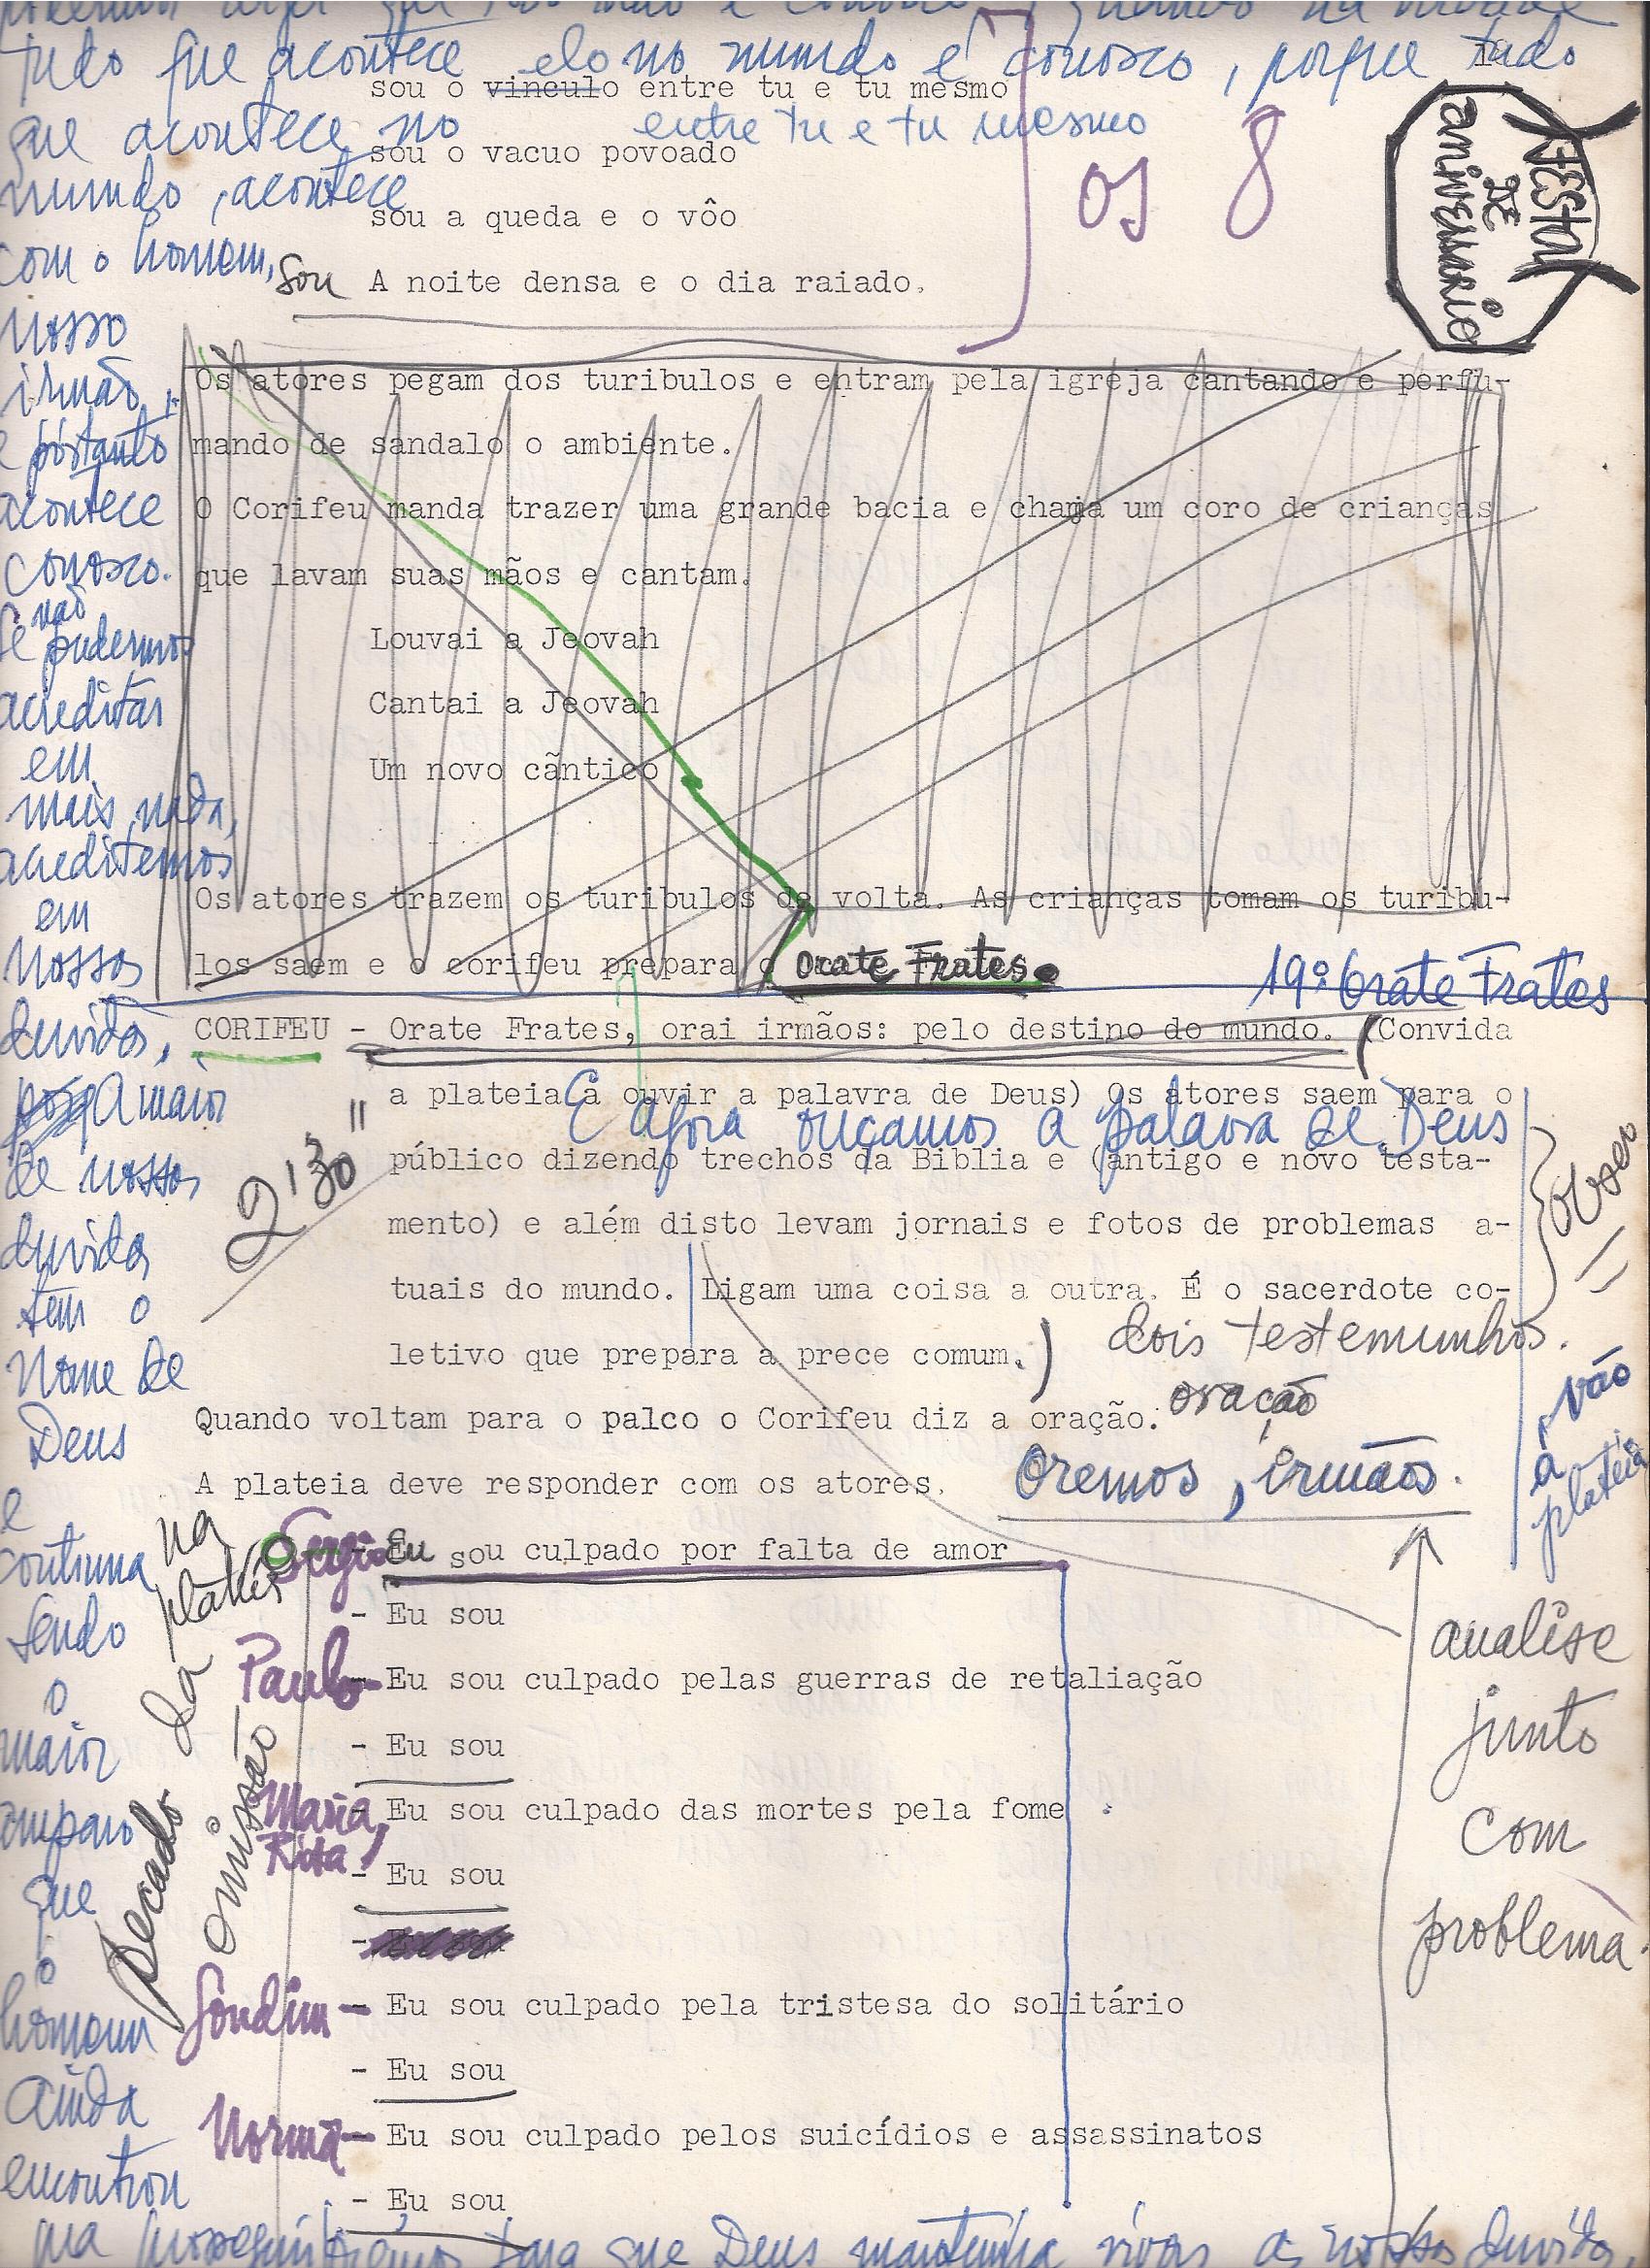 tudo que acontece no mundo é conosco, porque tudo
que acontece no
mundo, acontece
com o homem,
nosso
irmão,
e portanto
acontece
conosco.
Se não pudermos
acreditar
em
mais nada,
acreditemos
em
nossas
duvidas,
A maior
de nossas
duvidas
tem o
nome de
Deus
e
continua
sendo
o
maior
amparo
que
o
homem
ainda
encontrou
que Deus mantenha vivas as nossas duvidas
sou o vinculo entre tu e tu mesmo
entre tu e tu mesmo
sou o vacuo povoado
sou a queda e o vôo
sou A noite densa e o dia raiado.
os 8
FESTA
DE
aniversario
Os atores pegam dos turibulos e entram pela igreja cantando e perfu-
mando de sandalo o ambiente.
O Corifeu manda trazer uma grande bacia e chama um coro de crianças
que lavam suas mãos e cantam.
Louvai a Jeovah
Cantai a Jeovah
Um novo cãntico
Os atores trazem os turibulos de volta. As crianças tomam os turibu-
los saem e o corifeu prepara o Orate Frates.
19º Orate Frates
CORIFEU - Orate Frates, orai irmãos: pelo destino do mundo. (Convida
a plateia a ouvir a palavra de Deus) Os atores saem para o
E agora ouçamos a palavra de Deus
público dizendo trechos da Biblia e (antigo e novo testa-
mento) e além disto levam jornais e fotos de problemas a-
tuais do mundo. Ligam uma coisa a outra. É o sacerdote co-
letivo que prepara a prece comum.)
2'30"
dois testemunhos.
vão
a
plateia
Quando voltam para o palco o Corifeu diz a oração:
oração
A plateia deve responder com os atores.
Oremos, irmãos.
na
plateia
Sergio Eu sou culpado por falta de amor
- Eu sou
Paulo - Eu sou culpado pelas guerras de retaliação
- Eu sou
Maria Rita - Eu sou culpado das mortes pela fome
- Eu sou
-
Gondim - Eu sou culpado pela tristesa do solitário
- Eu sou
Norma - Eu sou culpado pelos suicídios e assassinatos
- Eu sou
pecado da
omissão
analise
junto
com
problema.